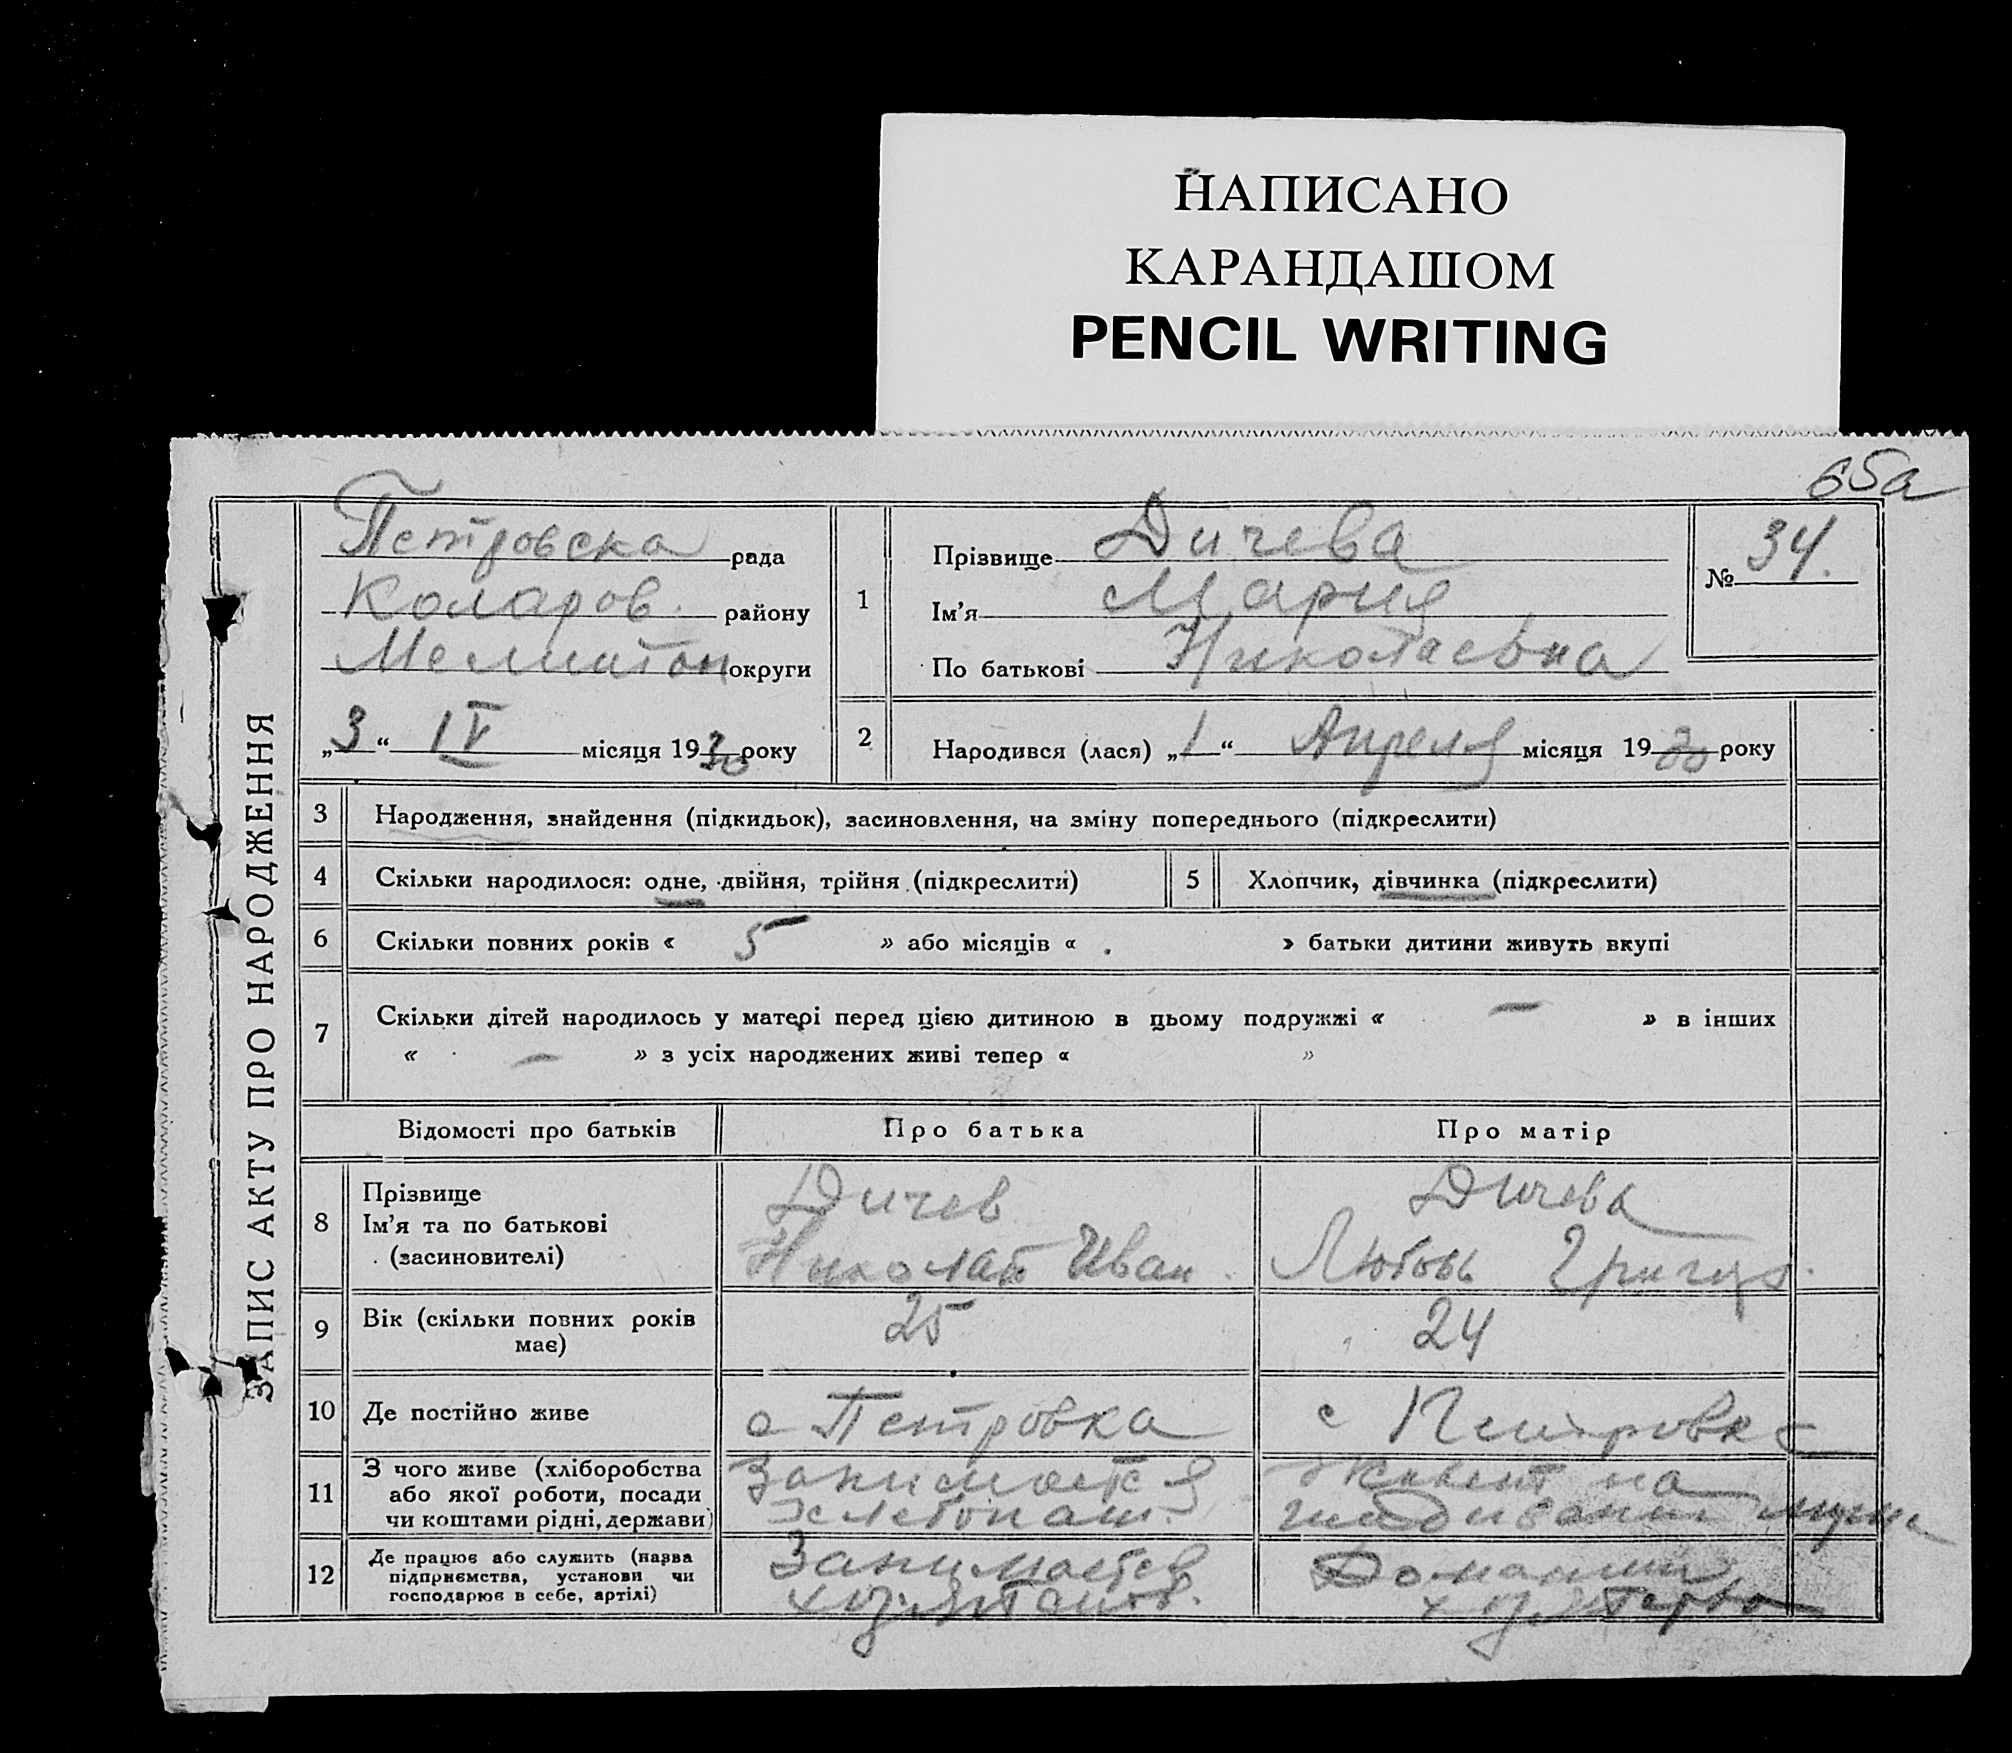 НАПИСАНО
КАРАНДАШОМ
PENCIL WRITING
65а
ЗАПИС АКТУ ПРО НАРОДЖЕННЯ
Петровска рада
Коларов. району
округи
„3“ IV місяця 1930 року
1
Прізвище Дичева
Ім’я Мария
По батькові Николаевна
№ 34.
2
Народився (лася) „1“ Апреля місяця 1930 року
3 Народження, знайдення (підкидьок), засиновлення, на зміну попереднього (підкреслити)
4 Скільки народилося: одне, двійня, трійня (підкреслити)
5 Хлопчик, дівчинка (підкреслити)
6 Скільки повних років « 5 » або місяців « . » батьки дитини живуть вкупі
7 Скільки дітей народилось у матері перед цією дитиною в цьому подружжі « — » в інших
« — » з усіх народжених живі тепер « »
Відомості про батьків Про батька Про матір
8 Прізвище
Ім’я та по батькові
(засиновителі)
Дичев
Николай Иван.
Дичева
Любовь Григор.
9 Вік (скільки повних років
має)
25
24
10 Де постійно живе
с Петровка
с Петровка
11 З чого живе (хліборобства
або якої роботи, посади
чи коштами рідні, держави)
Занимается
хлебопаш.
на
12 Де працює або служить (назва
підприємства, установи чи
господарює в себе, артілі)
Занимается
Домашни